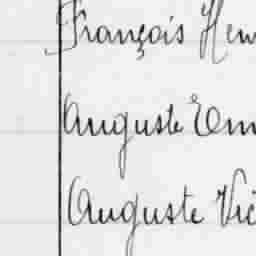 François Hen
Auguste Em
Auguste Vic